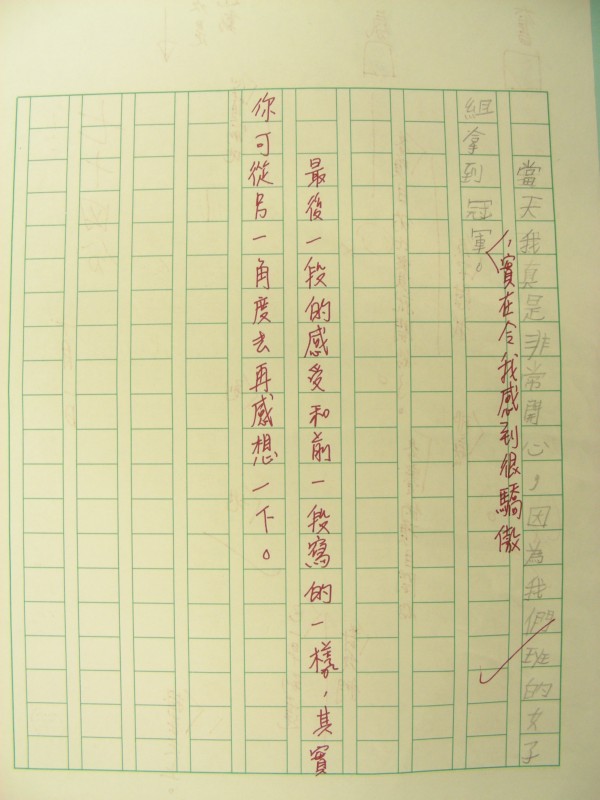 當天我真是非常開心，因為我們班的女子
組拿到冠軍。
，實在令我感到很驕傲
最後一段的感受和前一段寫的一樣，其實
你可從另一角度去再感想一下。